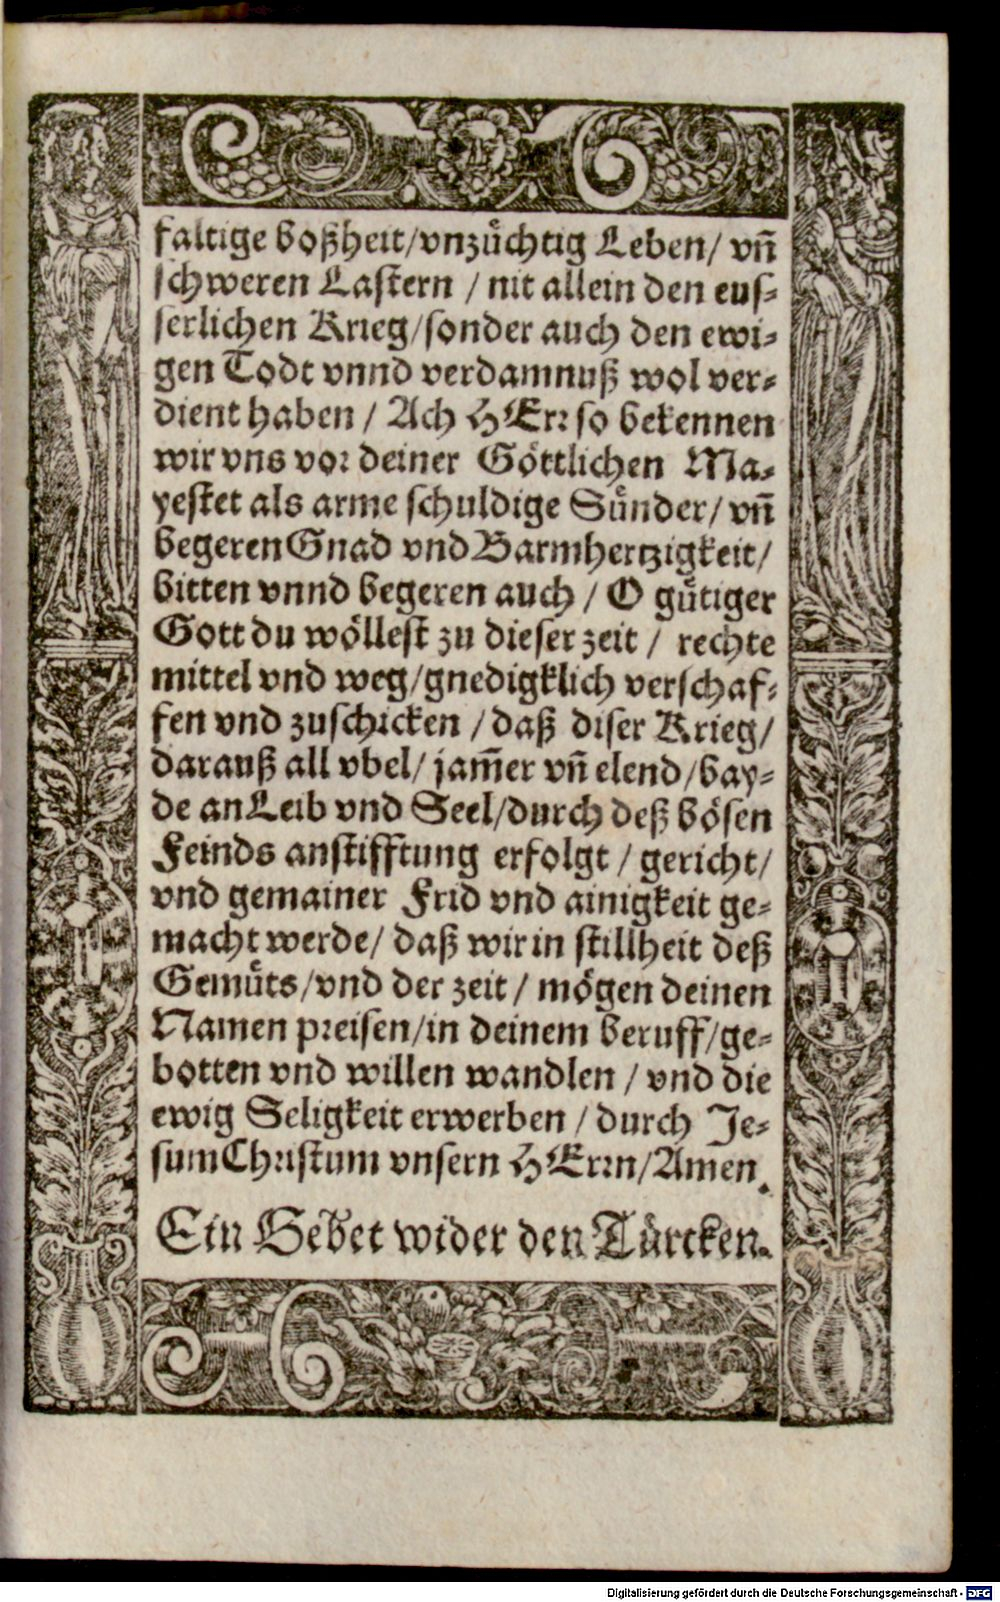 faltige boßheit/vnzuͤchtig Leben/ vñ
schweren Lastern / nit allein den eus⸗
serlichen Krieg/sonder auch den ewi⸗
gen Todt vnnd verdamnuß wol ver⸗
dient haben / Ach HErr so bekennen
wir vns vor deiner Göttlichen Ma⸗
yestet als arme schuldige Suͤnder/ vñ
begeren Gnad vnd Barmhertzigkeit/
bitten vnnd begeren auch / O guͤtiger
Gott du wöllest zu dieser zeit / rechte
mittel vnd weg/gnedigklich verschaf⸗
fen vnd zuschicken / daß diser Krieg/
darauß all vbel/ jam̃er vñ elend/bay⸗
de an Leib vnd Seel/durch deß bösen
Feinds anstifftung erfolgt / gericht/
vnd gemainer Frid vnd ainigkeit ge⸗
macht werde/ daß wir in stillheit deß
Gemuͤts/vnd der zeit / mögen deinen
Namen preisen/in deinem beruff/ge⸗
botten vnd willen wandlen / vnd die
ewig Seligkeit erwerben / durch Je⸗
sum Christum vnsern HErrn/Amen.
Ein Gebet wider den Tuͤrcken.
Digitalisierung gefördert durch die Deutsche Forschungsgemeinschaft - DFG